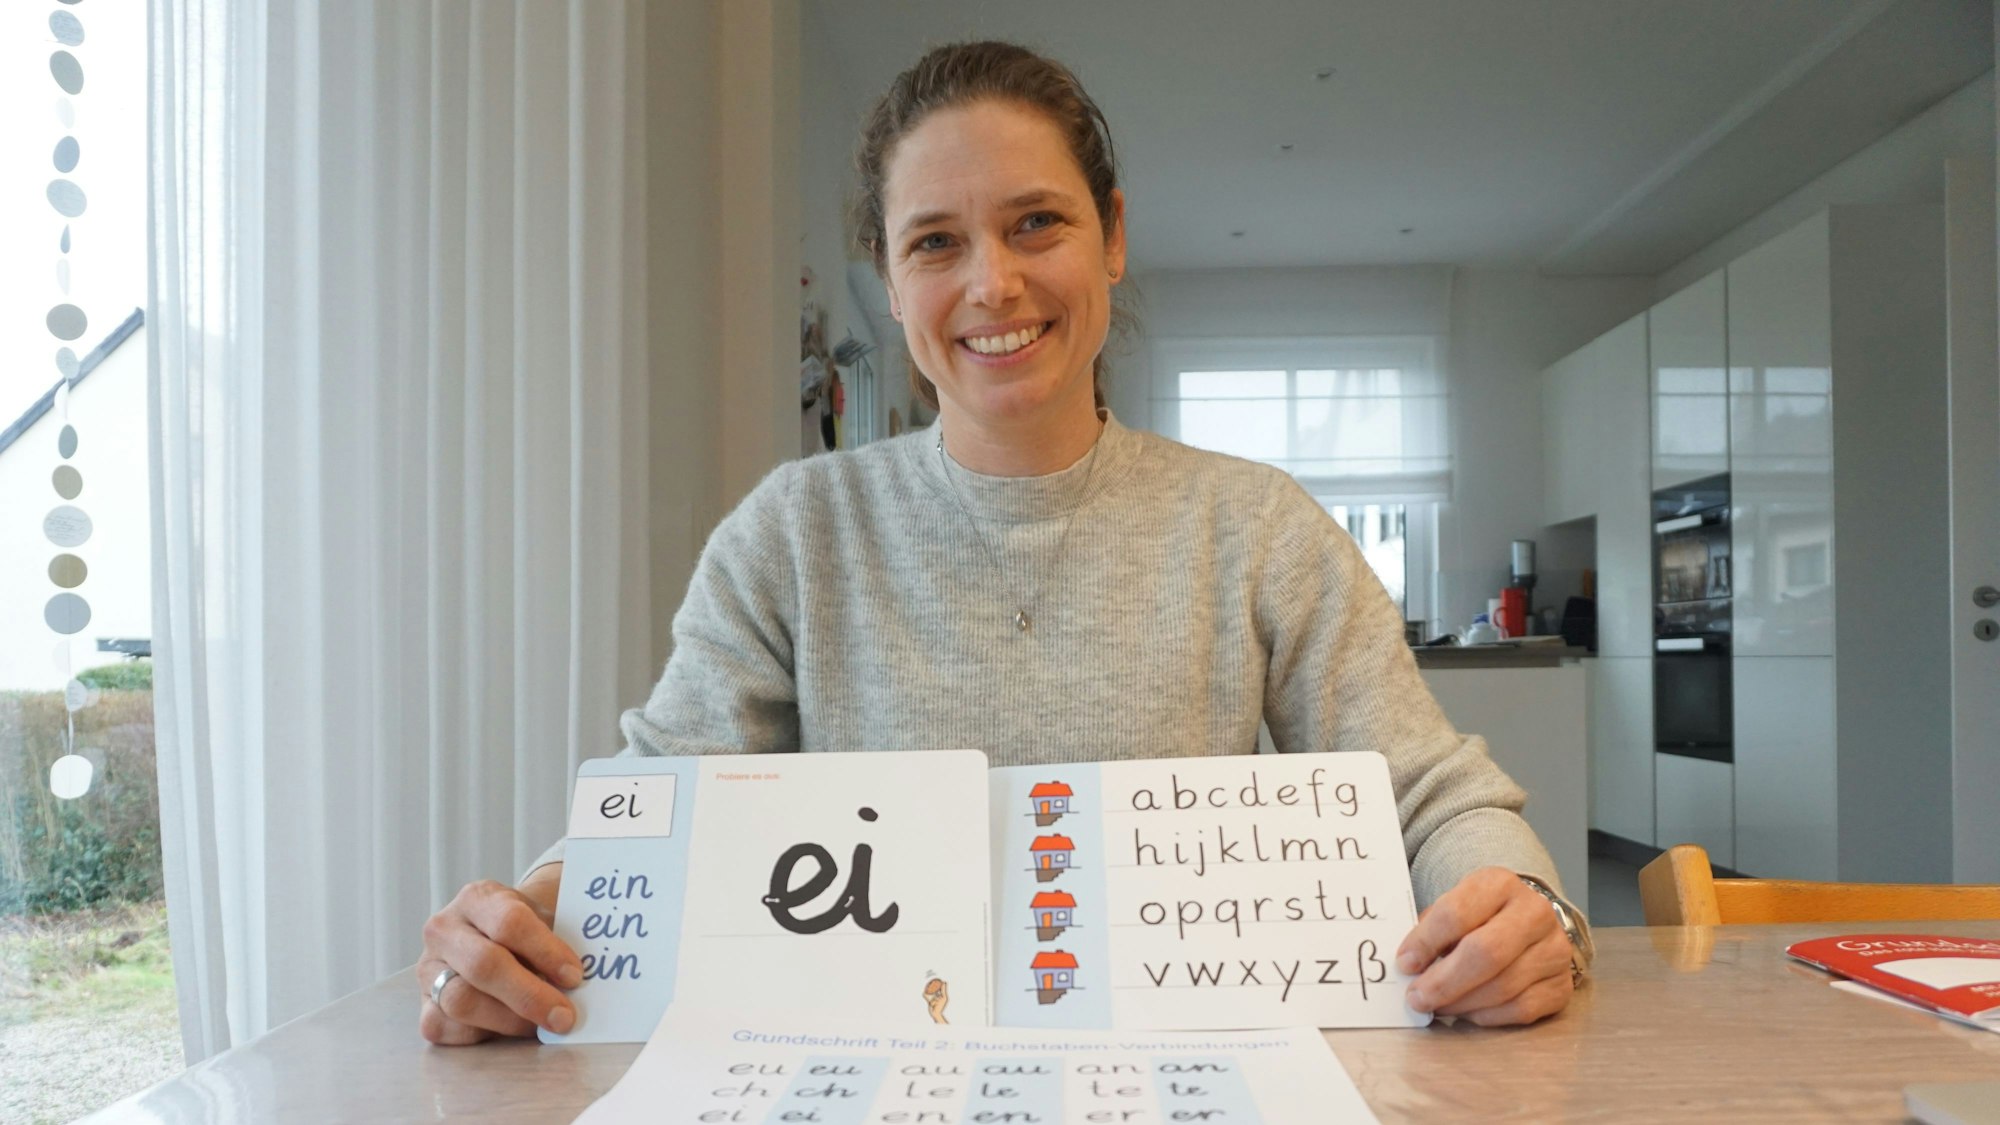 ei
ein
ein
ein
Probiere es aus.
ei
abcdefg
hijklmn
opqrstu
vwxyzß
Grundschrift Teil 2: Buchstaben-Verbindungen
eu eu au au an an
ch ch le le te te
ei ei en en er er